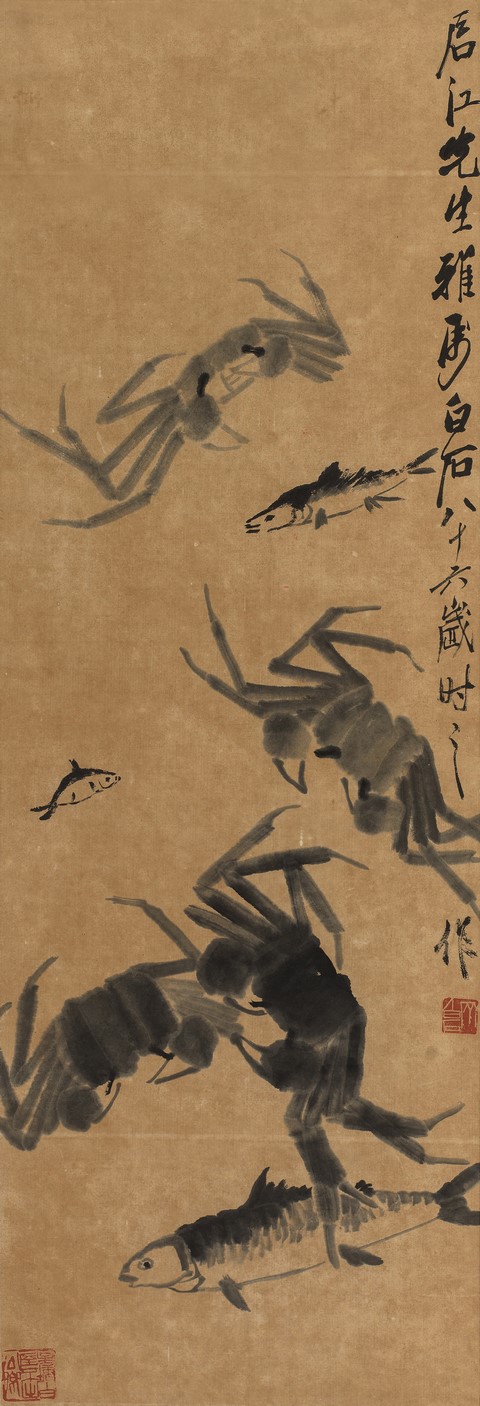 江先生雅属白石八十六歲时之作